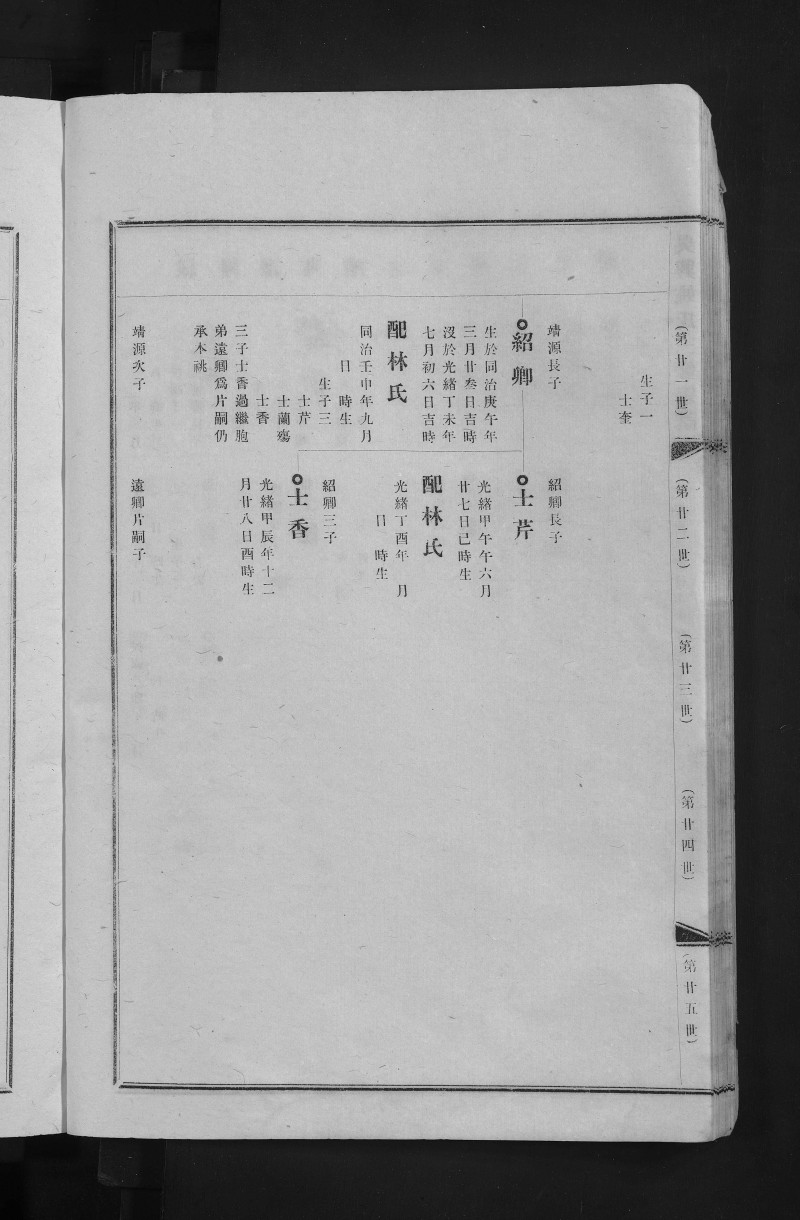 (第廿一世)
(第廿二世)
(第廿三世)
(第廿四世)
(第廿五世)
生子一
士奎
靖源長子
紹卿
生於同治庚午年
三月廿叁日吉時
沒於光緒丁未年
七月初六日吉時
配林氏
同治壬申年九月
日 時生
生子三
士芹
士蘭殤
士香
三子士香過繼胞
弟遠卿爲片嗣仍
承本祧
靖源次子
紹卿長子
士芹
光緒甲午午六月
廿七日己時生
配林氏
光緒丁酉年 月
日 時生
紹卿三子
士香
光緒甲辰年十二
月廿八日酉時生
遠卿片嗣子